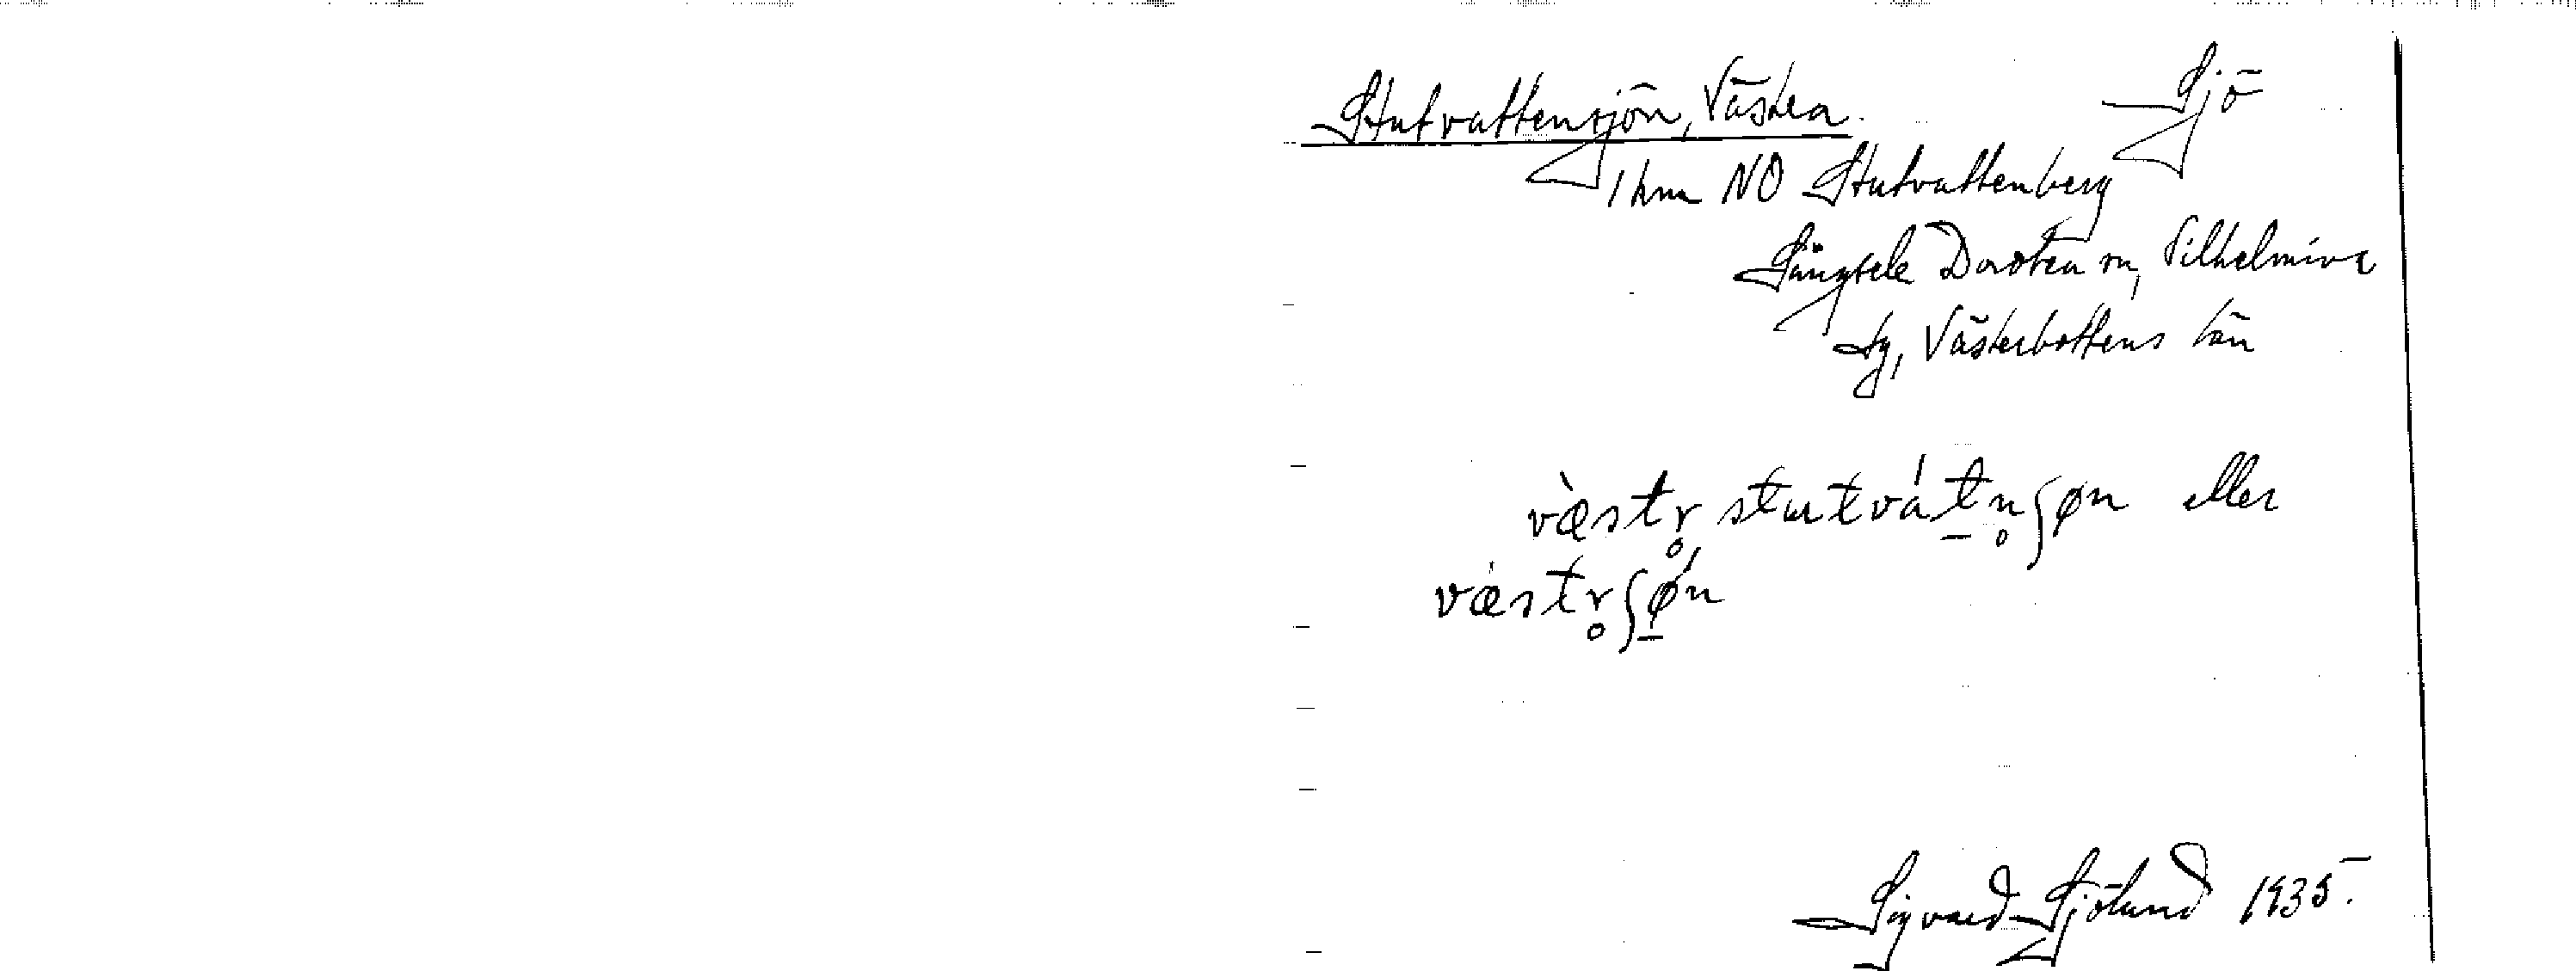 Stutvattensjön, Västra. Sjö
1 km NO Stutvattenberg
Dorotea sn, Vilhelmina
tg, Västerbottens län
væ̀str̥ stutvát̠n̥ʃøn eller
væ̀str̥ʃǿ̠n
Sigvard Sjölund 1935.